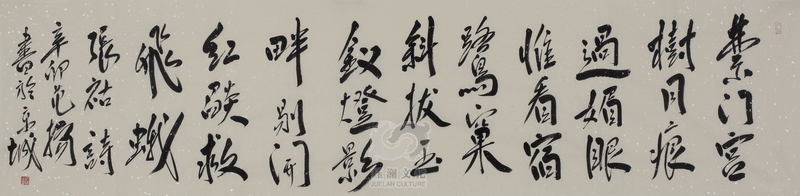 禁门宫
樹月痕
過媚眼
惟看宿
鷺窠
斜拔玉
釵燈影
畔剔開
紅燄救
飛蛾
張祜詩
辛卯
書於京城
澜文化
JUELAN CULTURE